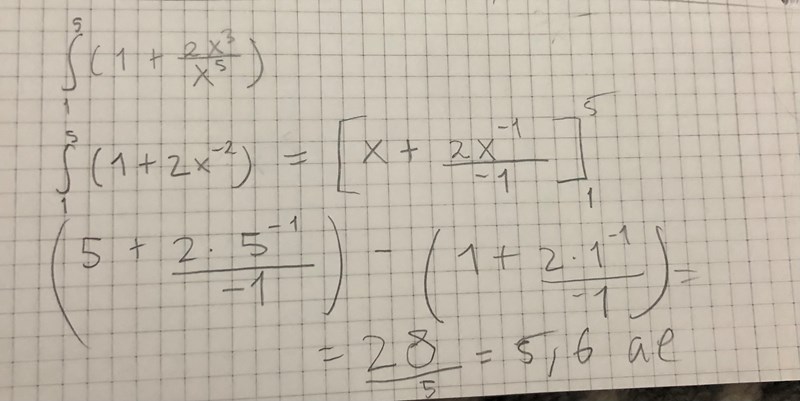 ∫₁⁵ (1 + 2x³/x⁵)
∫₁⁵ (1 + 2x⁻²) = [x + 2x⁻¹/-1]₁⁵
(5 + 2·5⁻¹/-1) - (1 + 2·1⁻¹/-1) =
= 28/5 = 5,6 ae